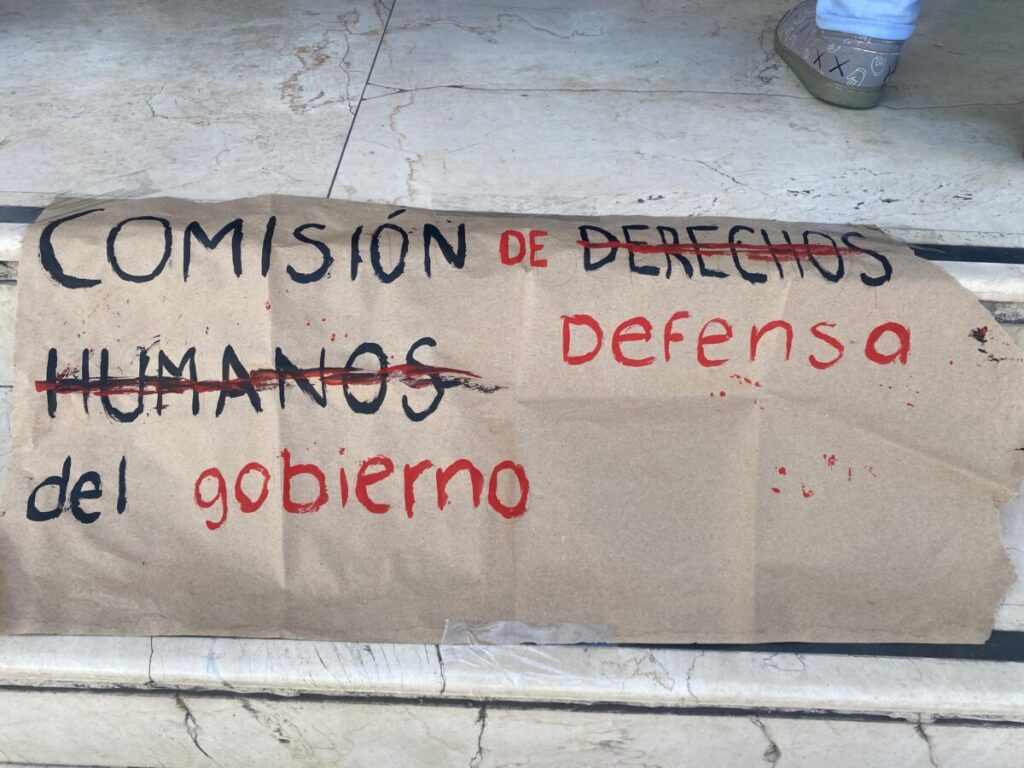 COMISIÓN DE DERECHOS
Defensa
HUMANOS
del gobierno